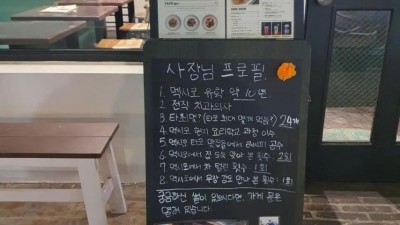 사장님 프로필
1. 멕시코 유학 약 10년
2. 전직 치과의사
3. 타최몇? (타코 최대 몇개 먹음?) 24개
4. 멕시코 현지 요리학교 과정 이수
5. 멕시코 타코 맛집들에서 레시피 공수
6. 멕시코에서 집 도둑 맞아 본 횟수: 2회
7. 멕시코에서 차 털린 횟수: 1회
8. 멕시코에서 무장 강도 만나 본 횟수: 1회
궁금하신 썰이 있으시다면, 가게 문은
열려 있습니다.